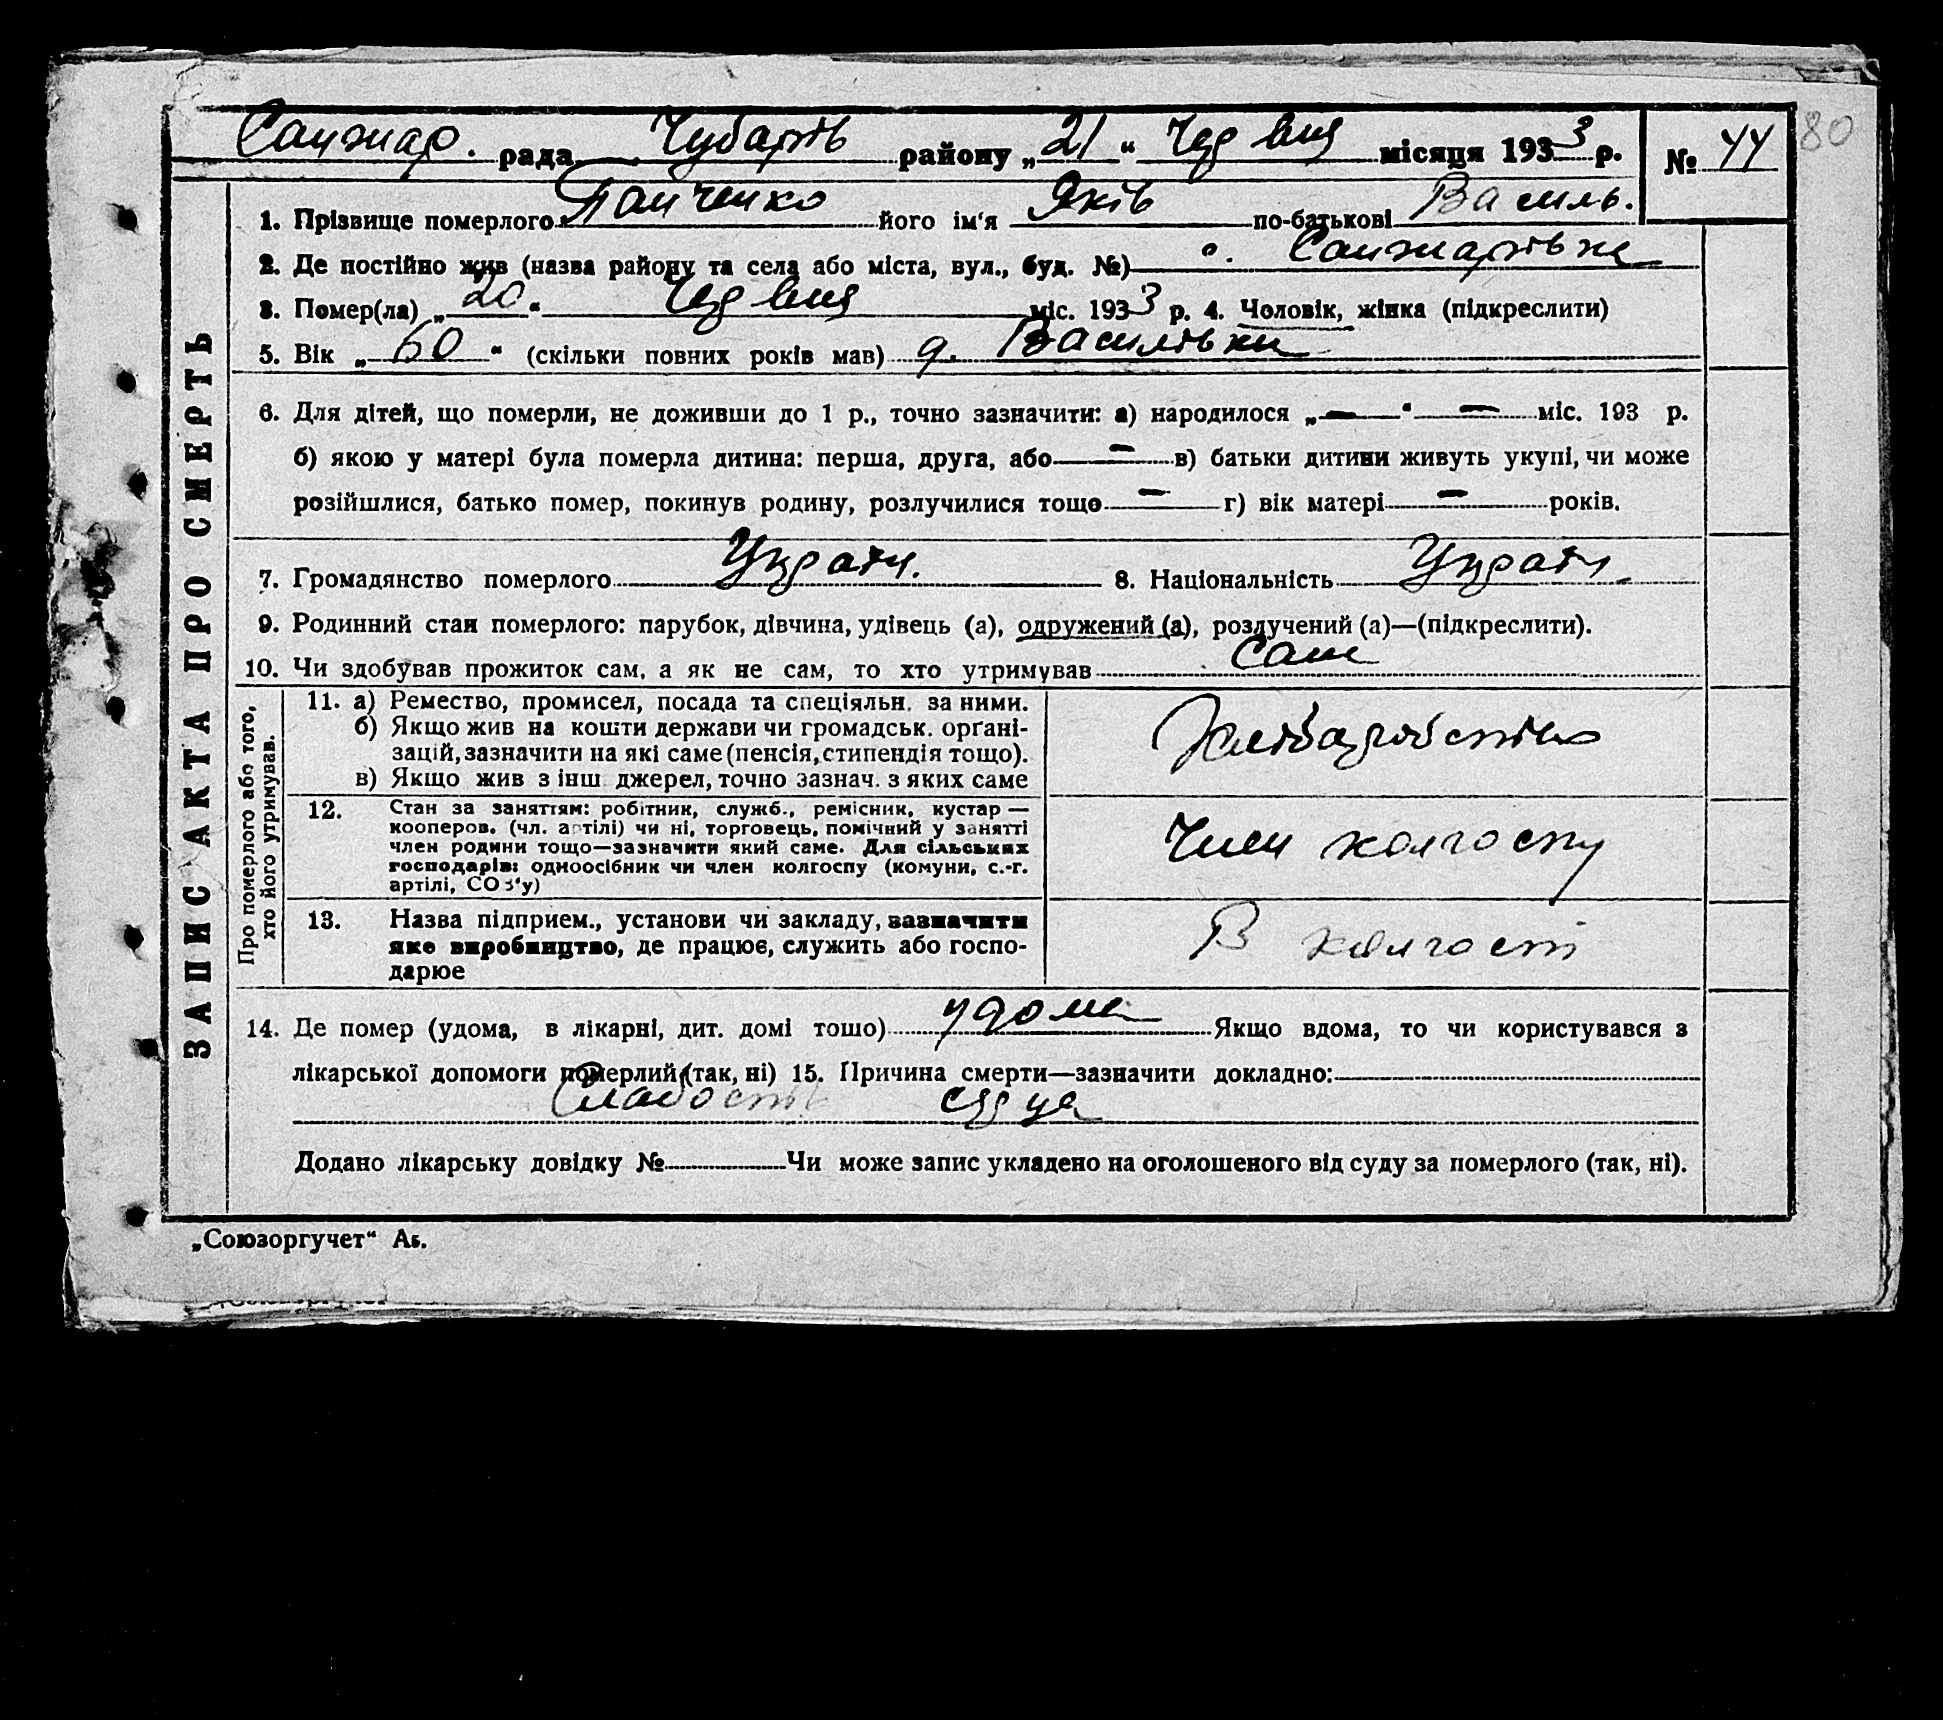 80
Санжар. рада Чубарів району „21“ Червня місяця 1933 р. № 44
ЗАПИС АКТА ПРО СМЕРТЬ
1. Прізвище померлого Панченко його ім'я Яків по-батькові Василь.
2. Де постійно жив (назва району та села або міста, вул., буд. №) с. Санжарівка
3. Помер(ла) „20“ Червня міс. 1933 р. 4. Чоловік, жінка (підкреслити)
5. Вік „60“ (скільки повних років мав) д. Василівка
6. Для дітей, що померли, не доживши до 1 р., точно зазначити: а) народилося „—“ — міс. 193 р.
б) якою у матері була померла дитина: перша, друга, або — в) батьки дитини живуть укупі, чи може
розійшлися, батько помер, покинув родину, розлучилися тощо — г) вік матері — років.
7. Громадянство померлого Україн. 8. Національність Україн.
9. Родинний стан померлого: парубок, дівчина, удівець (а), одружений (а), розлучений (а)—(підкреслити).
10. Чи здобував прожиток сам, а як не сам, то хто утримував Сам
Про померлого або того,
хто його утримував.
11. а) Ремество, промисел, посада та спеціяльн. за ними.
б) Якщо жив на кошти держави чи громадськ. орґані-
зацій, зазначити на які саме (пенсія, стипендія тощо).
в) Якщо жив з інш. джерел, точно зазнач. з яких саме
12. Стан за заняттям: робітник, служб., ремісник, кустар —
кооперов. (чл. артілі) чи ні, торговець, помічний у занятті
член родини тощо—зазначити який саме. Для сільських
господарів: одноосібник чи член колгоспу (комуни, с.-г.
артілі, СОЗ'у)
Член колгоспу
13. Назва підприєм., установи чи закладу, зазначити
яке виробництво, де працює, служить або госпо-
дарює
В колгоспі
14. Де помер (удома, в лікарні, дит. домі тошо) удома Якщо вдома, то чи користувався з
лікарської допомоги померлий (так, ні) 15. Причина смерти—зазначити докладно:
Слабость серця
Додано лікарську довідку № Чи може запис укладено на оголошеного від суду за померлого (так, ні).
„Союзоргучет“ Аб.